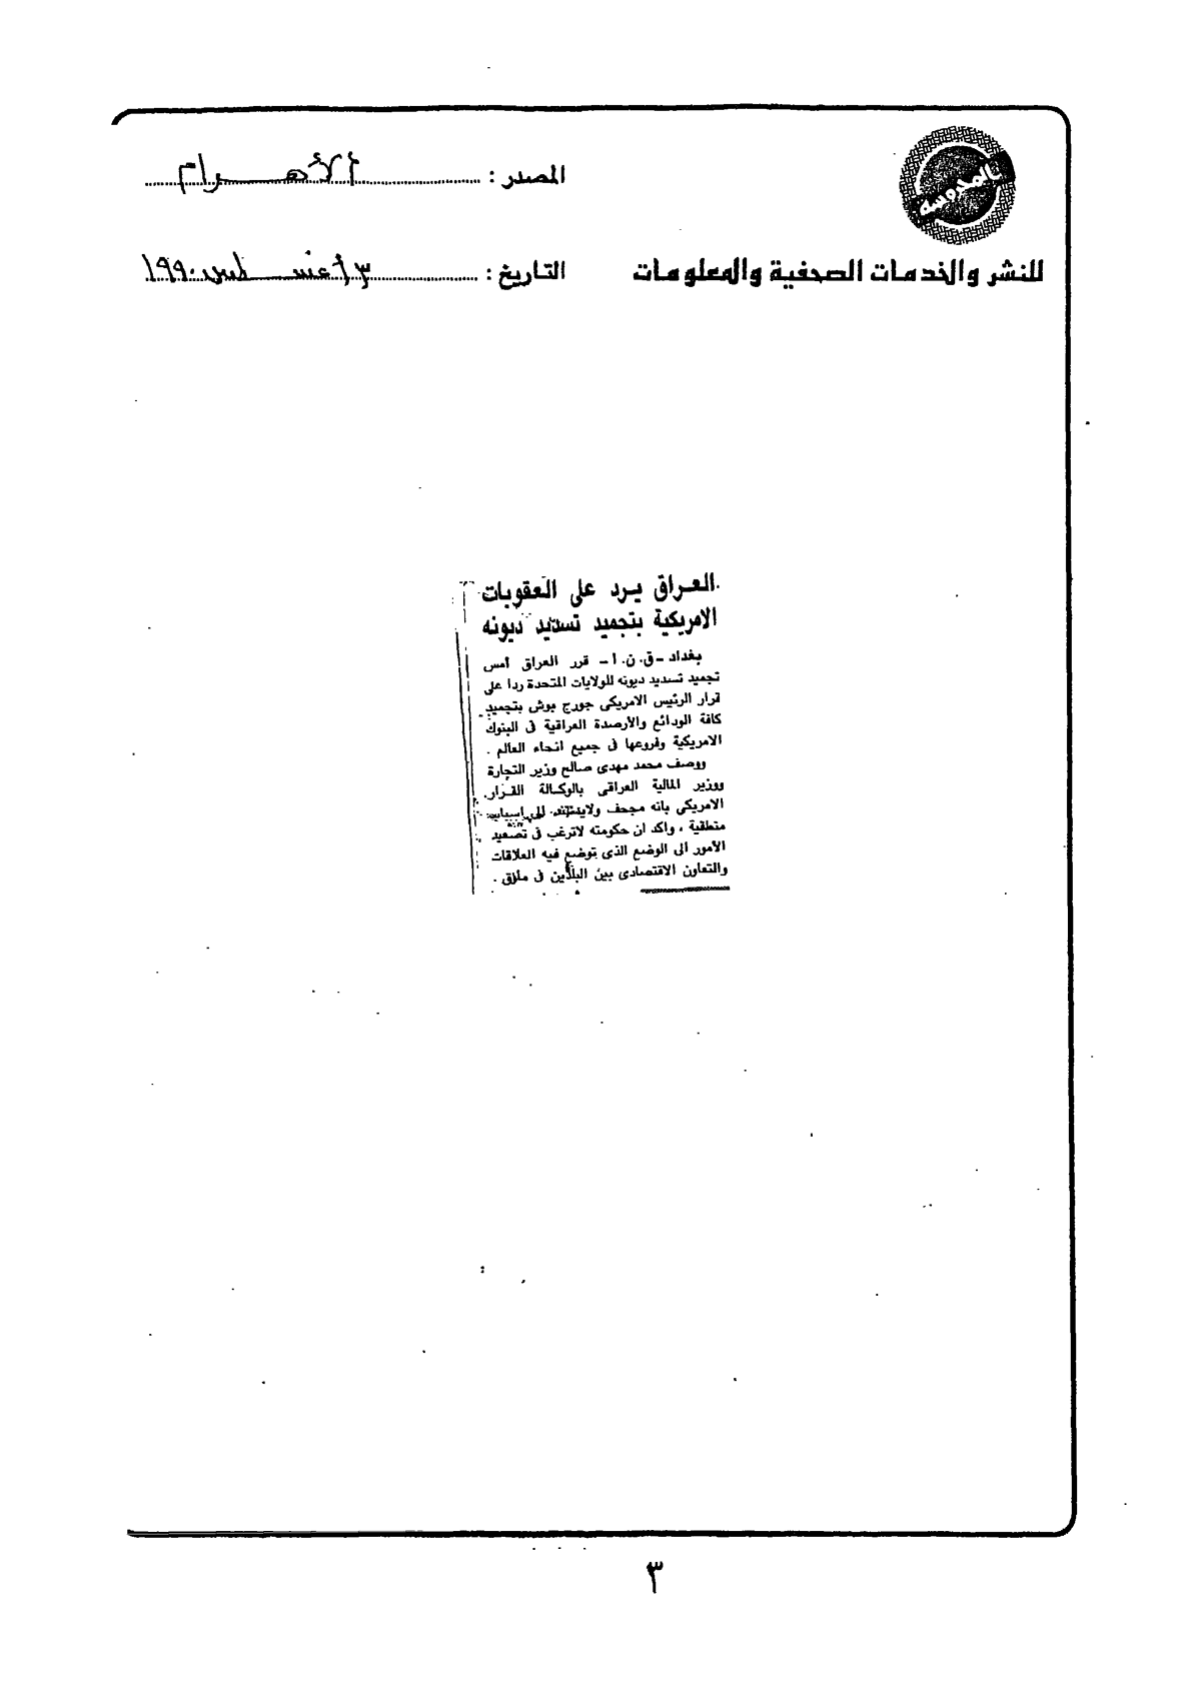 المدرسة
المصدر : الأهرام
للنشر والخدمات الصحفية والمعلومات
التاريخ : ٣ أغسطس ١٩٩٠
العراق يرد على العقوبات
الامريكية بتجميد تسديد ديونه
بغداد - ق . ن . ا - قرر العراق امس
تجميد تسديد ديونه للولايات المتحدة ردا على
قرار الرئيس الامريكى جورج بوش بتجميد
كافة الودائع والارصدة العراقية فى البنوك
الامريكية وفروعها فى جميع انحاء العالم .
ووصف محمد مهدى صالح وزير التجارة
ووزير المالية العراقى بالوكالة القرار
الامريكى بانه مجحف ولايستند الى اسباب
منطقية ، واكد ان حكومته لاترغب فى تصعيد
الأمور الى الوضع الذى توضع فيه العلاقات
والتعاون الاقتصادى بين البلدين فى مازق .
٣